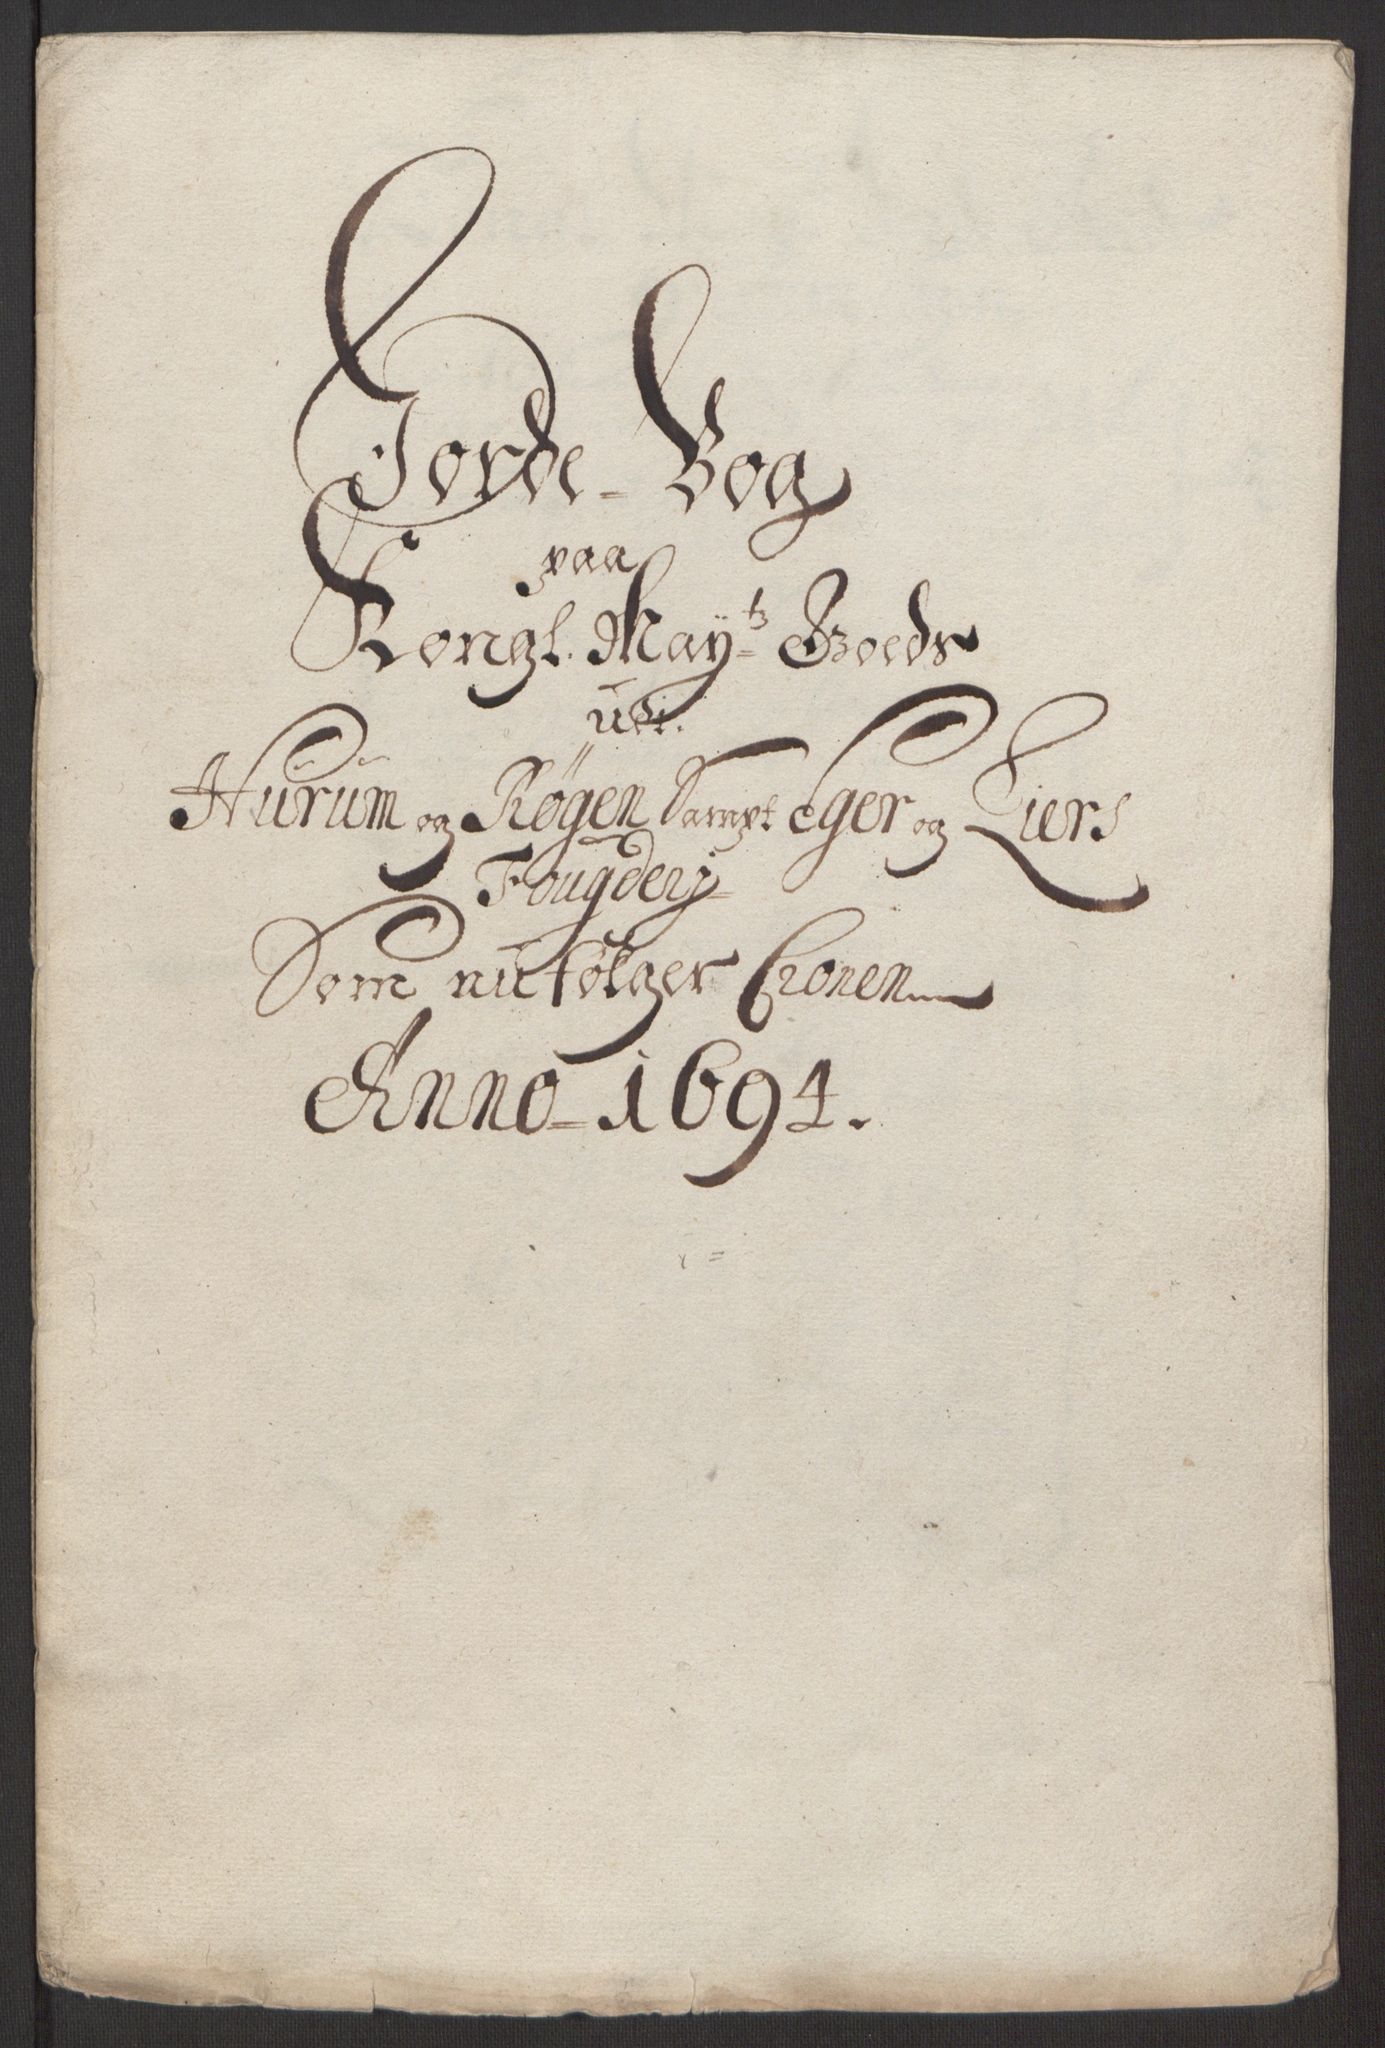 Jorde-Bog
paa
Kongl. May=tz Goeds
udi
Hurum og Røgen Sampt Eger og Liers
Fougderj
Som nu følger Cronen
Anno=1694.